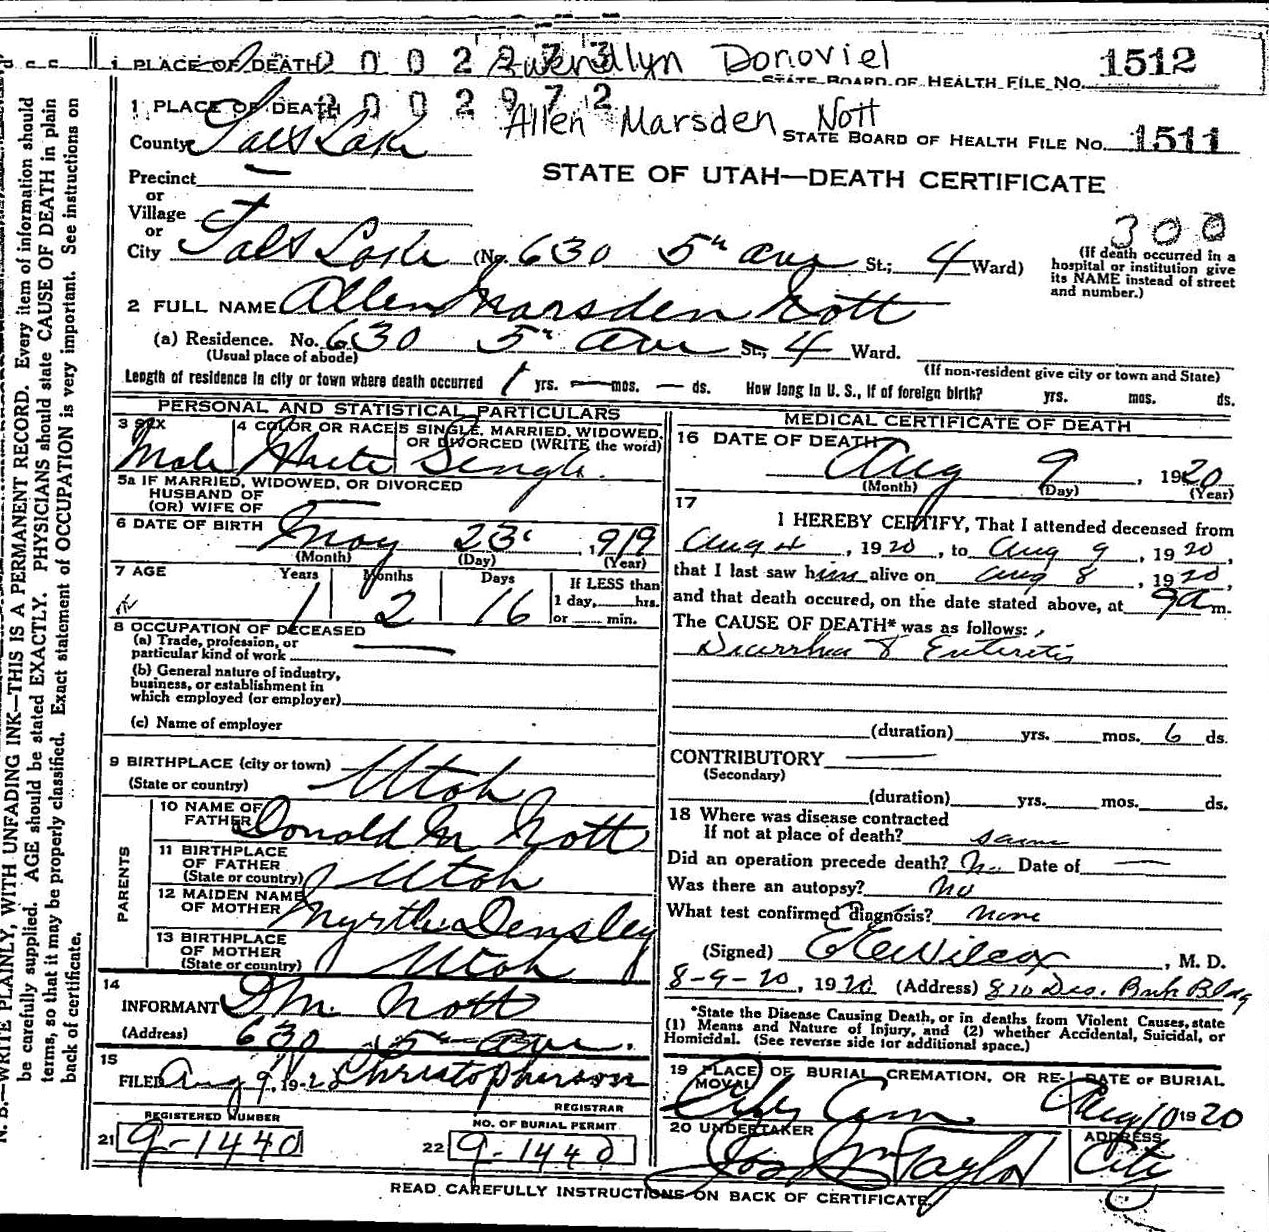 1 PLACE OF DEATH 0002973 Gwenallyn Donoviel
STATE BOARD OF HEALTH FILE NO. 1512
1 PLACE OF DEATH 0002972 Allen Marsden Nott
STATE BOARD OF HEALTH FILE NO. 1511
County Salt Lake
STATE OF UTAH—DEATH CERTIFICATE
Precinct —
or
Village
or
City Salt Lake (No. 630 5th ave St.; 4 Ward)
300
(If death occurred in a
hospital or institution give
its NAME instead of street
and number.)
2 FULL NAME Allen Marsden Nott
(a) Residence. No. 630 5th Ave St., 4 Ward.
(Usual place of abode)
(If non-resident give city or town and State)
Length of residence in city or town where death occurred 1 yrs. — mos. — ds. How long in U. S., if of foreign birth? yrs. mos. ds.
PERSONAL AND STATISTICAL PARTICULARS
3 SEX
Male
4 COLOR OR RACE
White
5 SINGLE, MARRIED, WIDOWED,
OR DIVORCED (WRITE the word)
Single
5a IF MARRIED, WIDOWED, OR DIVORCED
HUSBAND OF
(OR) WIFE OF —
6 DATE OF BIRTH May 23 , 1919
(Month) (Day) (Year)
7 AGE Years Months Days If LESS than
1 2 16 1 day,____hrs.
or ____ min.
8 OCCUPATION OF DECEASED
(a) Trade, profession, or
particular kind of work —
(b) General nature of industry,
business, or establishment in
which employed (or employer)
(c) Name of employer
9 BIRTHPLACE (city or town)
(State or country) Utah
PARENTS
10 NAME OF
FATHER Donald M Nott
11 BIRTHPLACE
OF FATHER
(State or country) Utah
12 MAIDEN NAME
OF MOTHER Myrtle Densley
13 BIRTHPLACE
OF MOTHER
(State or country) Utah
14
INFORMANT D M. Nott
(Address) 630 5th Ave.
15
FILED Aug 9, 1920 Christopherson
REGISTRAR
REGISTERED NUMBER
21 9-1440
NO. OF BURIAL PERMIT
22 9-1440
MEDICAL CERTIFICATE OF DEATH
16 DATE OF DEATH
Aug 9 , 1920
(Month) (Day) (Year)
17
I HEREBY CERTIFY, That I attended deceased from
Aug 4 , 1920 , to Aug 9 , 1920 ,
that I last saw him alive on Aug 8 , 1920,
and that death occured, on the date stated above, at 9a m.
The CAUSE OF DEATH* was as follows:
Diarrhea & Enteritis
(duration) yrs. mos. 6 ds.
CONTRIBUTORY —
(Secondary)
(duration) yrs. mos. ds.
18 Where was disease contracted
If not at place of death? same
Did an operation precede death? No Date of —
Was there an autopsy? No
What test confirmed diagnosis? none
(Signed) E E Wilcox , M. D.
8-9-20 , 1920 (Address) 810 Des. Bank Bldg
*State the Disease Causing Death, or in deaths from Violent Causes, state
(1) Means and Nature of Injury, and (2) whether Accidental, Suicidal, or
Homicidal. (See reverse side for additional space.)
19 PLACE OF BURIAL, CREMATION, OR RE-
MOVAL
City Cem.
DATE OF BURIAL
Aug 10 1920
20 UNDERTAKER
Jos Wm Taylor
ADDRESS
City
READ CAREFULLY INSTRUCTIONS ON BACK OF CERTIFICATE.
N. B.—WRITE PLAINLY, WITH UNFADING INK—THIS IS A PERMANENT RECORD. Every item of information should
be carefully supplied. AGE should be stated EXACTLY. PHYSICIANS should state CAUSE OF DEATH in plain
terms, so that it may be properly classified. Exact statement of OCCUPATION is very important. See instructions on
back of certificate.